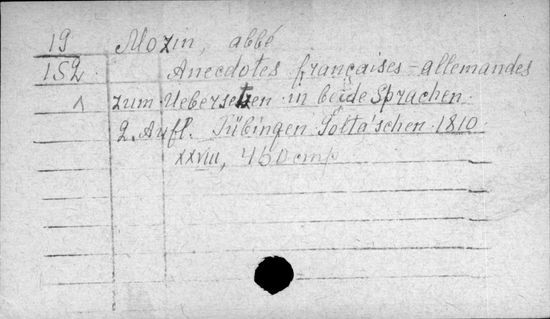 19 Mozin, abbé
152 Anecdotes françaises-allemandes
^ zum Uebersetzen in beide Sprachen.
2. Aufl. Tübingen 1810
XXVIII, 460 cmp